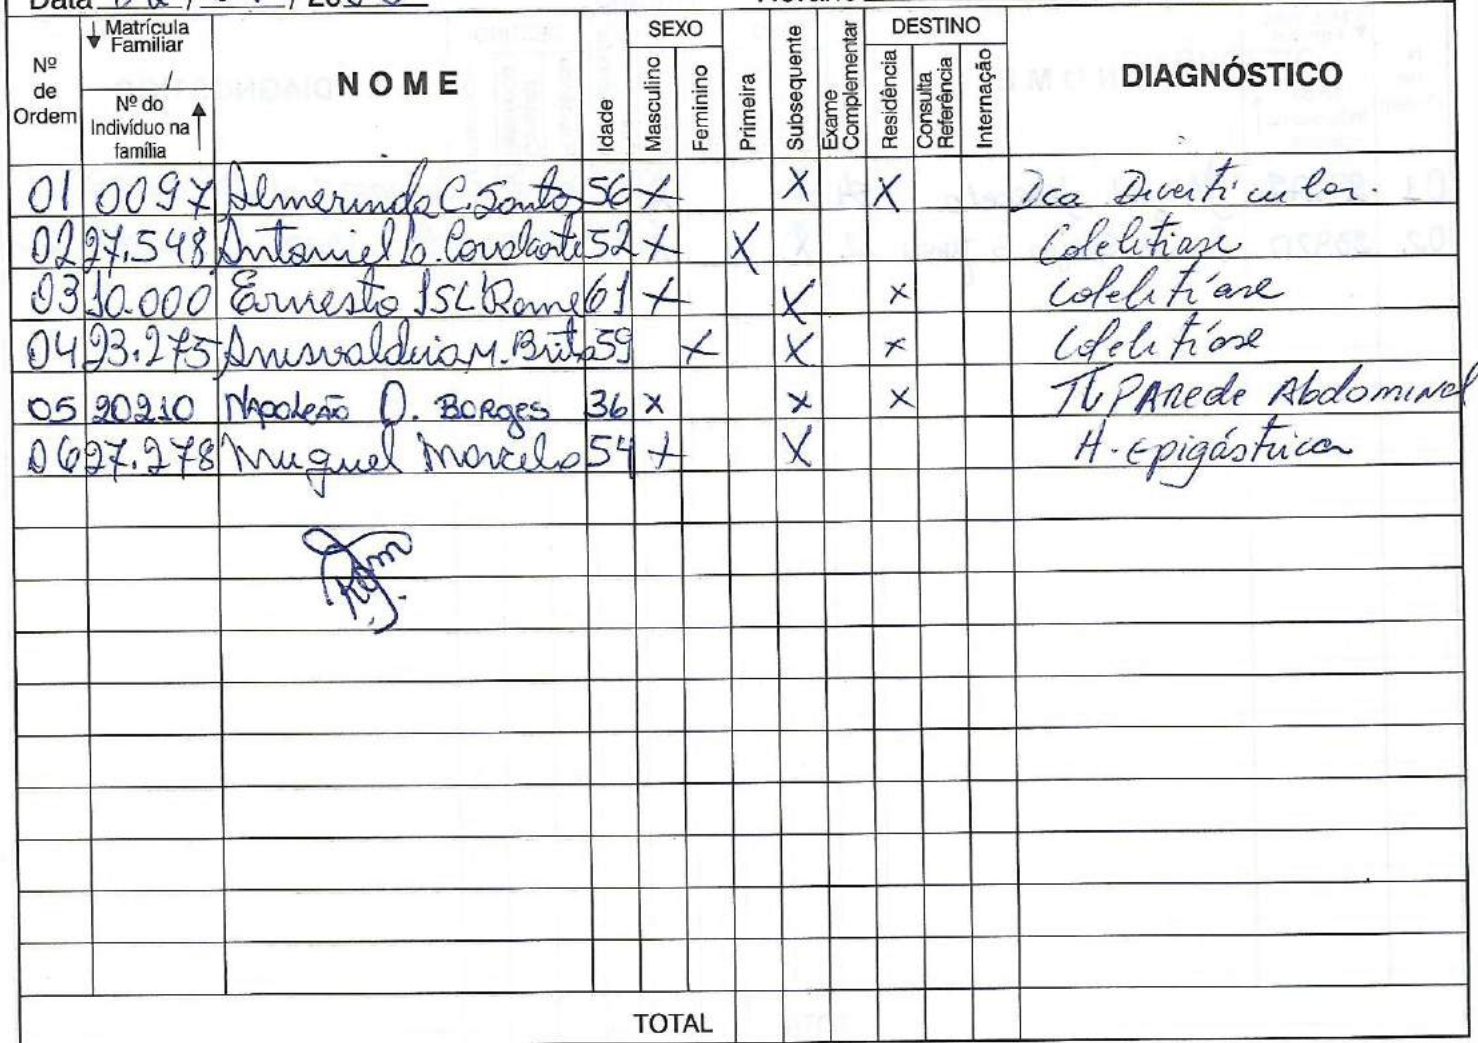 Data / / 20
↓ Matrícula Familiar
/
Nº do Indivíduo na família ↑
Nº de Ordem
NOME
Idade
SEXO
Masculino
Feminino
Primeira
Subsequente
Exame Complementar
DESTINO
Residência
Consulta Referência
Internação
DIAGNÓSTICO
01 0097 Almerinda C. Santos 56 X X X Dça Diverticular.
02 27.548 52 X X Colelitíase
03 10.000 Ernesto 61 X X X Colelitíase
04 23.275 M. Brito 59 X X X Colelitíase
05 20210 Napoleão O. Borges 36 X X X Parede Abdominal
06 27.278 Miguel Marcelo 54 X X H. Epigástrica
TOTAL